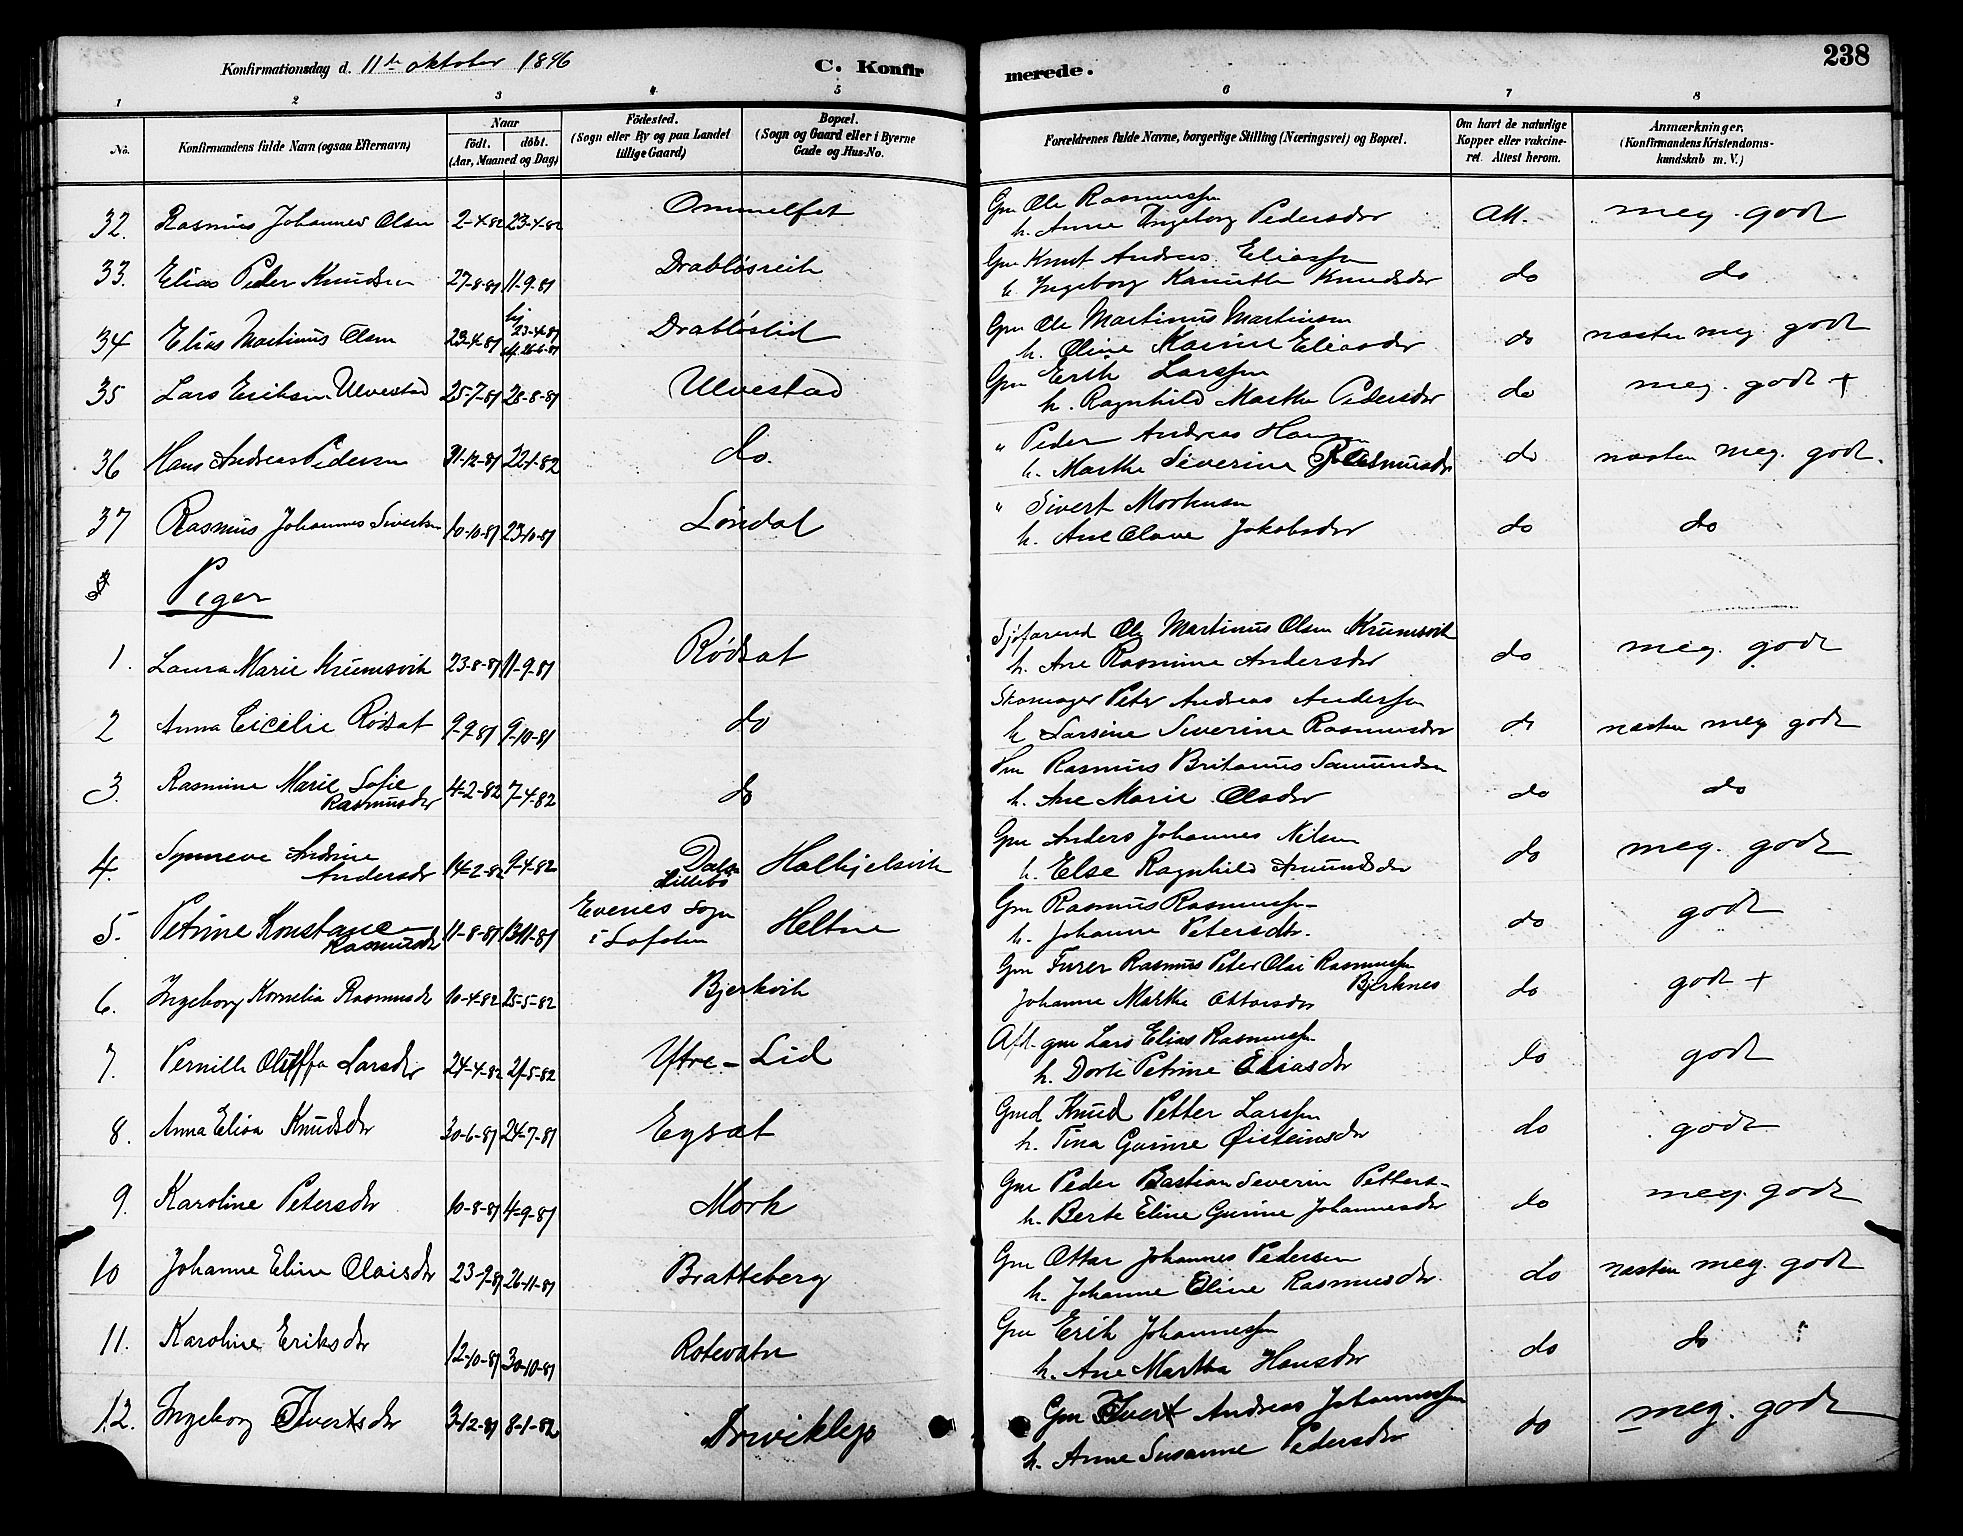 238
Konfirmationsdag d. 11te oktober 1896 C. Konfirmerede.
1 2 3 4 5 6 7 8
No. Konfirmandens fulde Navn (ogsaa Efternavn) Naar født. døbt. (Aar, Maaned og Dag) Fødested. (Sogn eller By og paa Landet tillige Gaard) Bopæl. (Sogn og Gaard eller i Byerne Gade og Hus-No. Forældrenes fulde Navne, borgerlige Stilling (Næringsvei) og Bopæl. Om havt de naturlige Kopper eller vakcineret. Attest herom. Anmærkninger. (Konfirmandens Kristendomskundskab m. V.)
32. Rasmus Johannes Olsen 2-4-82 23-4-82 Ommelfet Gm Ole Rasmussen Att. meg. godt
h. Anne Ingeborg Pedersdr
33. Elias Peder Knudsen 27-8-81 11-9-81 Drabløsreit Gm Knut Andreas Eliassen do do
h Ingeborg Knudsdr
34 Elias Martinus Olsen 23-4-81 hj 23-4-81 Drabløslid Gm Ole Martinus Martinsen do næsten meg godt
h. Oline Eliasdr
35 Lars Eriksen Ulvestad 25-7-81 28-8-81 Ulvestad Gm Erik Larssen do meg. godt +
h. Ragnhild Marthe Pedersdr
36 Hans Andreas Pedersen 31-12-81 22-1-82 do. " Peder Andreas Hansen do næsten meg. godt.
h. Marthe Severine Rasmusdr
37 Rasmus Johannes Sivertsen 10-10-81 23-10-81 Løndal " Sivert Mortensen do do
h. Ane Olave Jakobsdr
Piger
1. Laura Marie Krumsvik 23-8-81 11-9-81 Rødsæt Sjøfarend Ole Martinus Olsen Krumsvik do meg. godt
h. Ane Rasmine Andersdr
2 Anna Cicelie Rødsæt 9-9-81 9-10-81 do Skomager Peter Andreas Andersen do næsten meg godt
h Larsine Severine Rasmusdr
3. Rasmine Marie Sofie Rasmusdr 4-2-82 7-4-82 do Hm Rasmus Britanus Samundsen do do
h. Ane Marie Olsdr
4. Synneve Andrine Andersdr 14-2-82 9-4-82 Dale Lillebø Halkjelsvik Gm Anders Johannes Nilsen do meg. godt
h. Else Ragnhild Amundsdr
5. Petrine Konstance Rasmusdr 11-8-81 13-11-81 Evenes Sogn i Lofoten Heltne Gm Rasmus Rasmussen do godt
h. Johanne Petersdtr.
6. Ingeborg Kornelia Rasmusdr 10-4-82 25-5-82 Bjerkvik Gm Furer Rasmus Peter Olai Rasmussen Bjerknes do godt +
Johanne Marthe Ottarsdr
7. Pernille Oluffa Larsdr 24-4-82 21-5-82 Ytre-Lid Afd. gm Lars Elias Rasmussen do godt
h. Dorte Petrine Eliasdr
8. Anna Elisa Knudsdr 30-6-81 24-7-81 Eysæt Gmd Knud Petter Larssen do godt
h. Tina Gurine Øisteinsdr
9. Karoline Petersdr 10-8-81 4-9-81 Mork Gm Peder Bastian Severin Petters. do meg. godt
h. Berte Eline Gurine Johannesdr
10 Johanne Eline Olaisdr 23-9-81 26-11-81 Bratteberg Gm Ottar Johannes Pedersen do næsten meg. godt
h. Johanne Eline Rasmusdr.
11. Karoline Eriksdr 12-10-81 30-10-81 Rotevatn Gm Erik Johannessen do do
h. Ane Martha Hansdr
12. Ingeborg Ivertsdr 3-12-81 8-1-82 Gm Ivert Andreas Johannessen do meg. godt
h. Anne Susanne Pedersdr